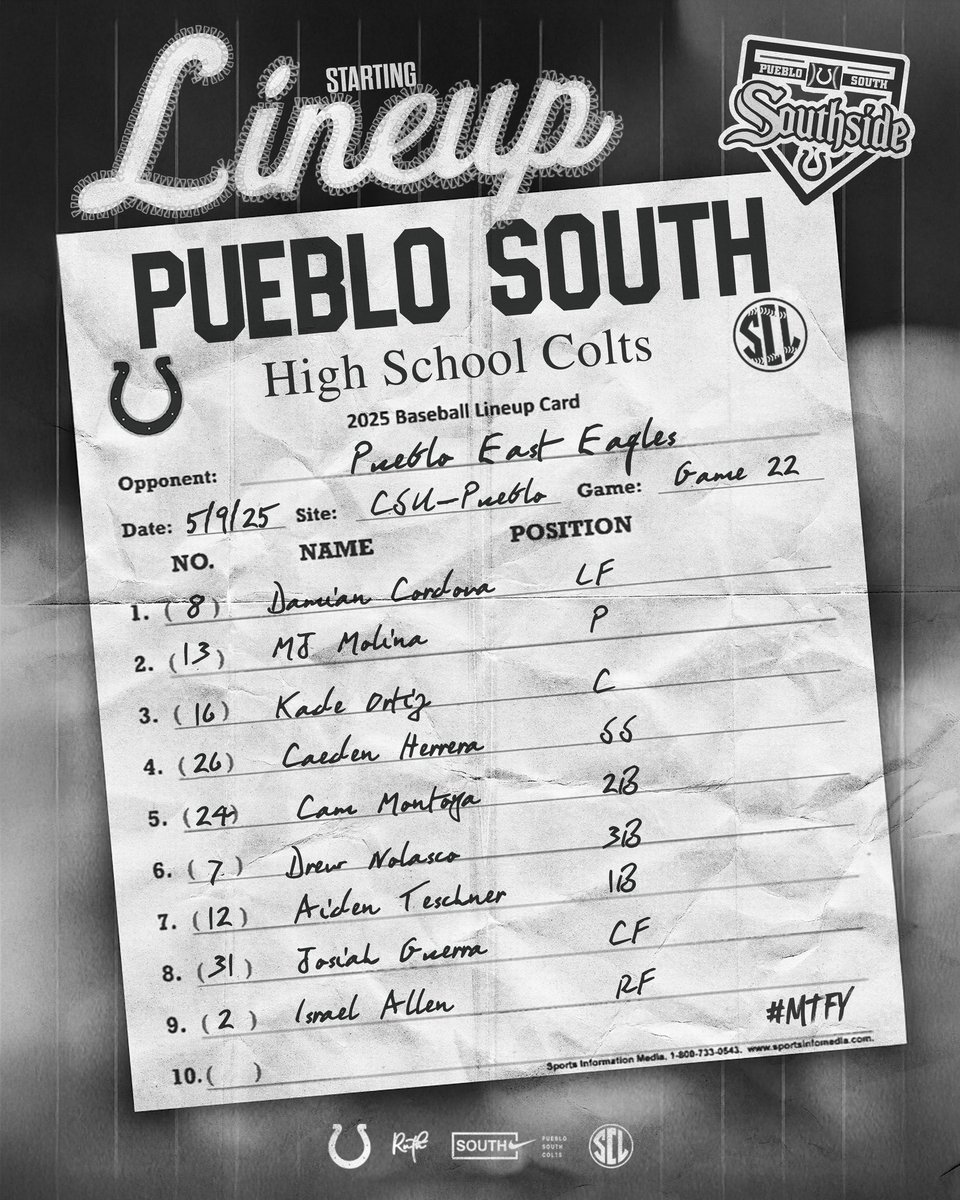 STARTING
Lineup
PUEBLO SOUTH
Southside
PUEBLO SOUTH
High School Colts
SCL
2025 Baseball Lineup Card
Opponent: Pueblo East Eagles
Date: 5/9/25 Site: CSU-Pueblo Game: Game 22
NO. NAME POSITION
1. (8) Damian Cordova LF
2. (13) MJ Molina P
3. (16) Kade Ortiz C
4. (26) Caeden Herrera SS
5. (24) Cam Montoya 2B
6. (7) Drew Nolasco 3B
7. (12) Aiden Teschner 1B
8. (31) Josiah Guerra CF
9. (2) Israel Allen RF
#MTFY
10. ( )
Sports Information Media. 1-800-733-0543. www.sportsinfomedia.com.
SOUTH
PUEBLO
SOUTH
COLTS
SCL